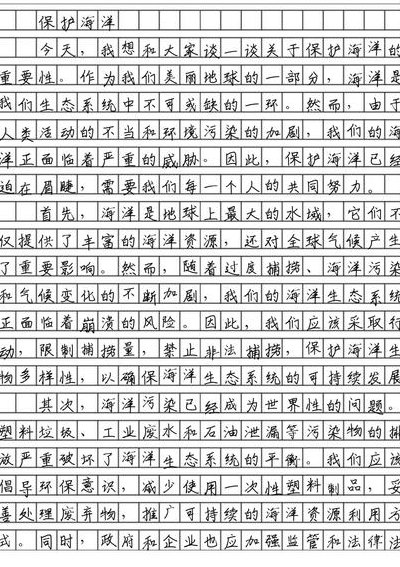 保护海洋
今天，我想和大家谈一谈关于保护海洋的
重要性。作为我们美丽地球的一部分，海洋是
我们生态系统中不可或缺的一环。然而，由于
人类活动的不当和环境污染的加剧，我们的海
洋正面临着严重的威胁。因此，保护海洋已经
迫在眉睫，需要我们每一个人的共同努力。
首先，海洋是地球上最大的水域，它们不
仅提供了丰富的海洋资源，还对全球气候产生
了重要影响。然而，随着过度捕捞、海洋污染
和气候变化的不断加剧，我们的海洋生态系统
正面临着崩溃的风险。因此，我们应该采取行
动，限制捕捞量，禁止非法捕捞，保护海洋生
物多样性，以确保海洋生态系统的可持续发展
其次，海洋污染已经成为世界性的问题。
塑料垃圾、工业废水和石油泄漏等污染物的排
放严重破坏了海洋生态系统的平衡。我们应该
倡导环保意识，减少使用一次性塑料制品，妥
善处理废弃物，推广可持续的海洋资源利用方
式。同时，政府和企业也应加强监管和法律